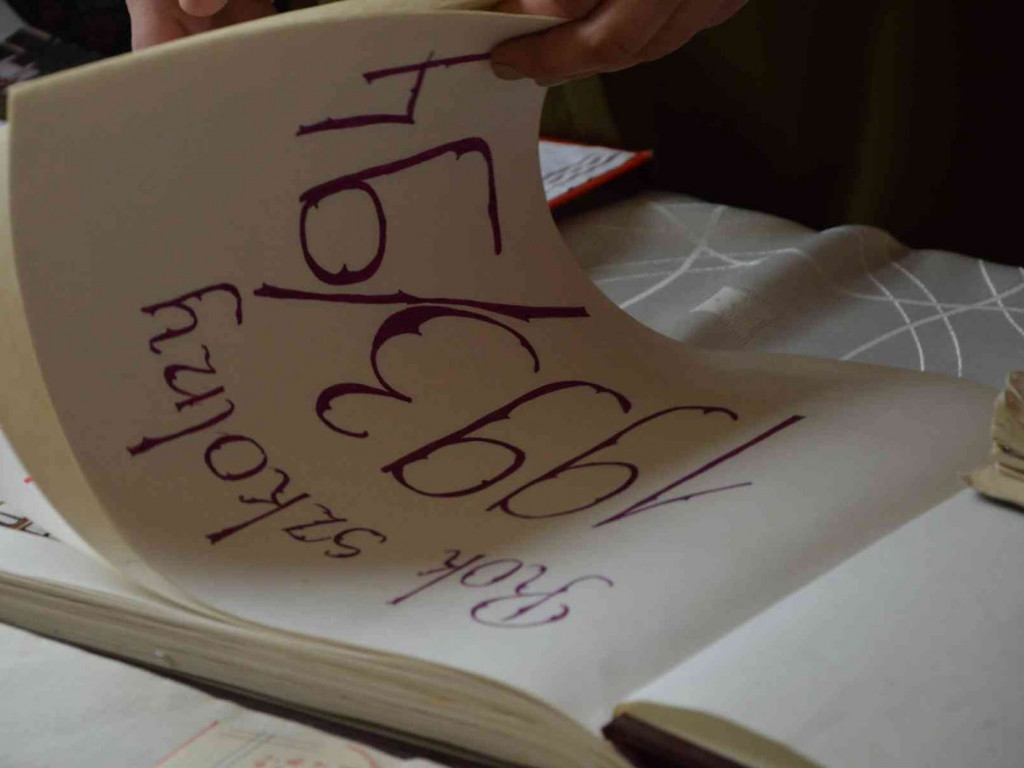 Rok szkolny
1993/94